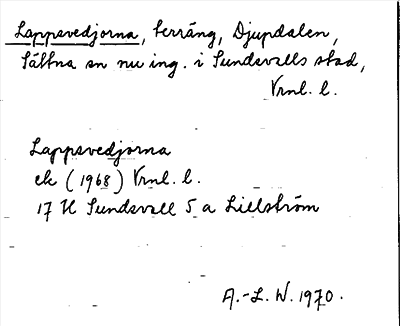 Lappsvedjorna, terräng, Djupdalen,
Sättna sn nu ing. i Sundsvalls stad,
Vrnl. l.
Lappsvedjorna
ek (1968) Vrnl. l.
17 H Sundsvall 5 a Lillström
A.-L. W. 1970.